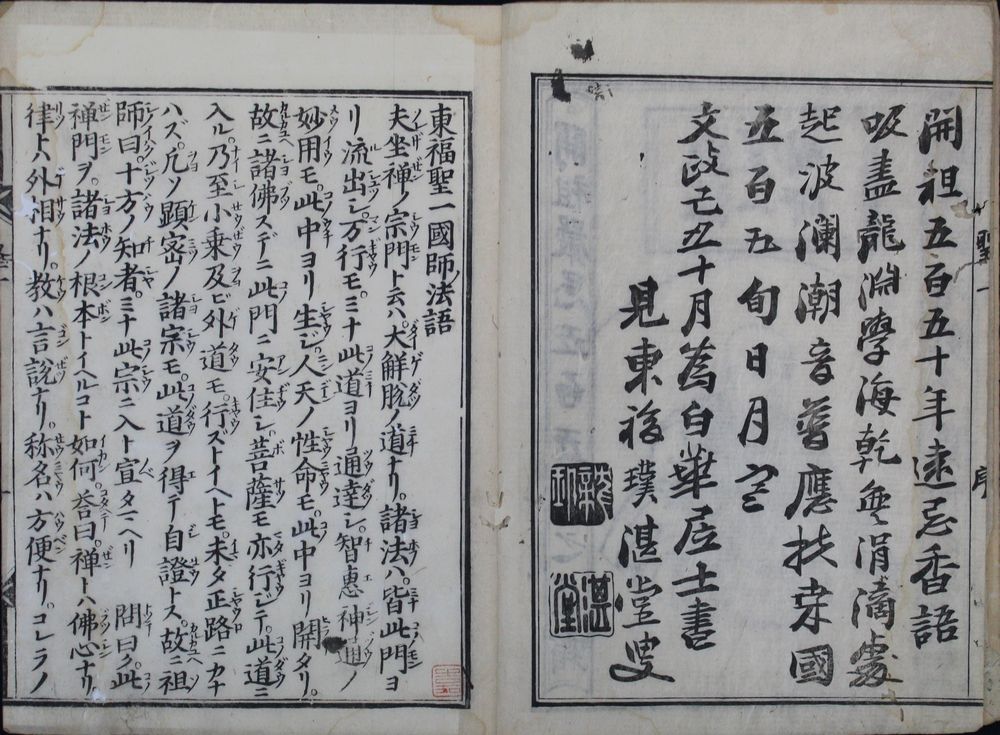 開祖五百五十年遠忌香語
吸盡龍淵學海乾無涓滴處
起波瀾潮音普應扶桒國
五百五旬日月寛
文政己丑十月為白華居士書
見東福璞湛堂叟
湛堂
聖一
序
東福聖一國師法語
夫坐禅ノ宗門ト云ハ。大解脱ノ道ナリ。諸法ハ。皆此門ヨ
リ流出シ。万行モ。ミナ此道ヨリ通達シ。智惠神通ノ
妙用モ。此中ヨリ生ジ。人天ノ性命モ。此中ヨリ開タリ。
故ニ諸佛スデニ此門ニ安住シ。菩薩モ亦行ジテ。此道ニ
入ル。乃至小乗及ビ外道モ。行ズトイヘトモ。未タ正路ニカナ
ハズ。凡ソ顕密ノ諸宗モ。此道ヲ得テ自證トス。故ニ祖
師曰。十方ノ知者。ミナ此宗ニ入ト宣タマヘリ 問曰ク。此
禅門ヲ。諸法ノ根本トイヘルコト如何。荅曰。禅トハ佛心ナリ。
律トハ外相ナリ。教ハ言說ナリ。称名ハ方便ナリ。コレラノ